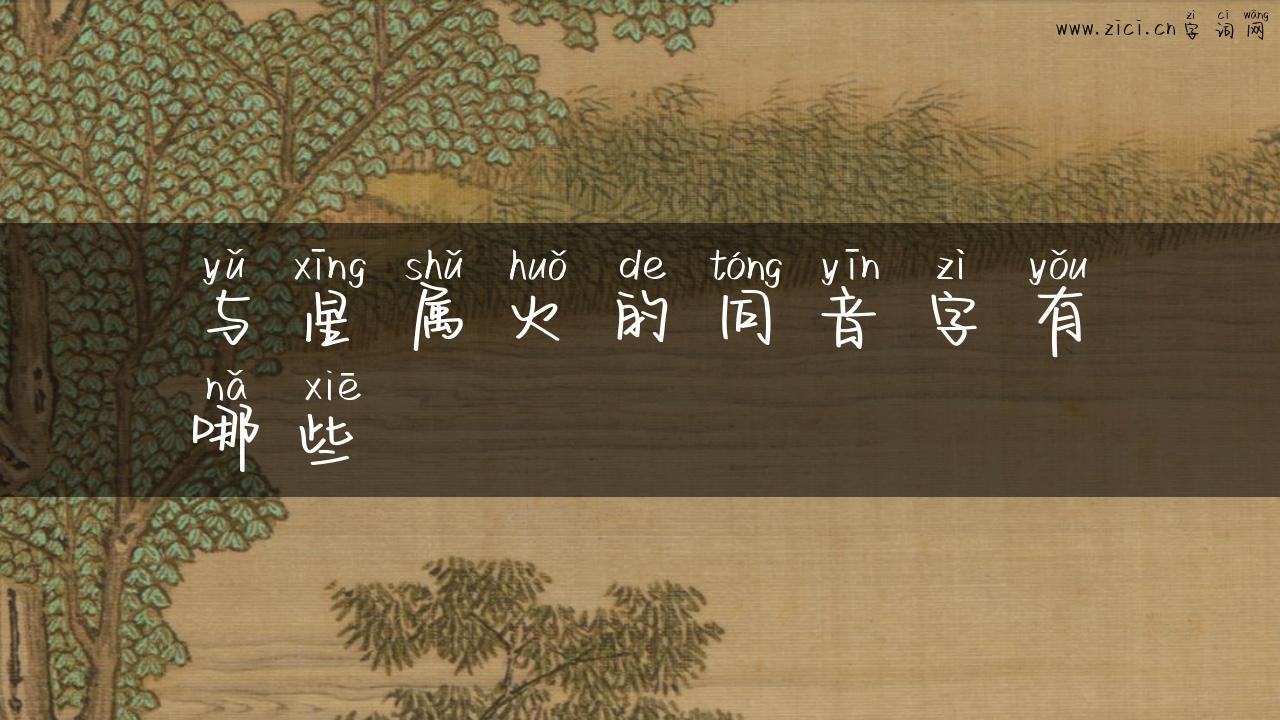 zì cí wǎng
www.zici.cn 字词网
yǔ xīng shǔ huǒ de tóng yīn zì yǒu
与星属火的同音字有
nǎ xiē
哪些